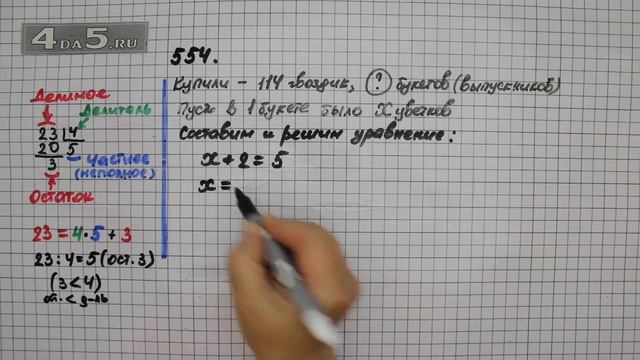 4DA5.RU
554.
Купили - 114 гвоздик, ? букетов (выпускников)
Пусть в 1 букете было x цветков
Составим и решим уравнение:
x + 2 = 5
x =
Делимое
Делитель
23 4
20 5
3
Частное
(неполное)
Остаток
23 = 4 · 5 + 3
23 : 4 = 5 (ост. 3)
(3 < 4)
ост. < д-ль